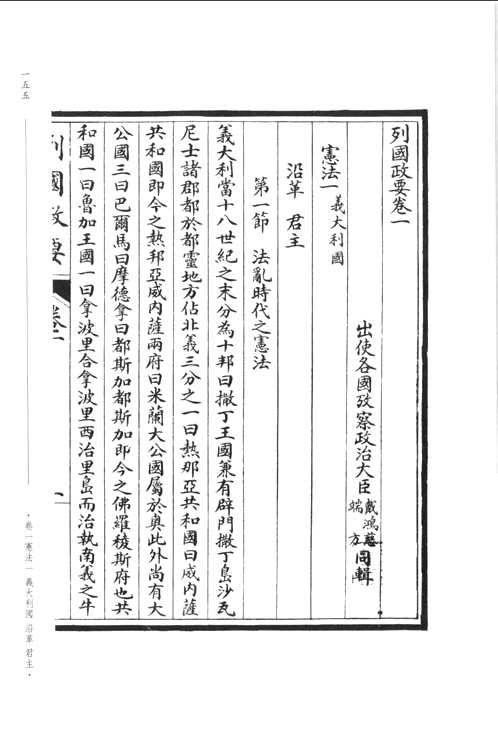 列國政要卷一
出使各國攷察政治大臣 戴鴻慈 端方 同輯
憲法一 義大利國
沿革 君主
第一節 法亂時代之憲法
義大利當十八世紀之末分為十邦曰撒丁王國兼有辟門撒丁島沙瓦
尼士諸郡都於都靈地方佔北義三分之一曰熱那亞共和國曰威内薩
共和國即今之熱邦亞威内薩兩府曰米蘭大公國屬於奥此外尚有大
公國三曰巴爾馬曰摩德拿曰都斯加都斯加即今之佛羅稜斯府也共
和國一曰魯加王國一曰拿波里合拿波里西治里島而治執南義之牛
列國政要 卷一 一
一五五
·卷一憲法一 義大利國 沿革 君主·